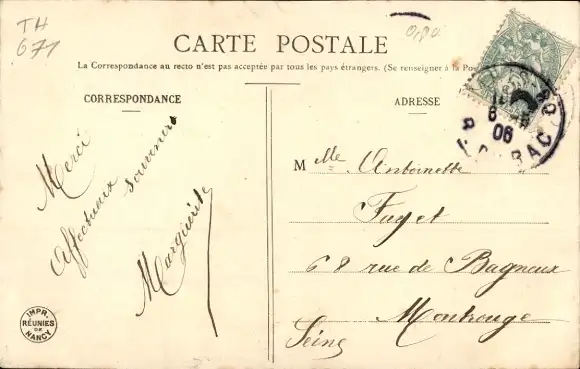 TH
671
CARTE POSTALE
La Correspondance au recto n'est pas acceptée par tous les pays étrangers. (Se renseigner à la Pos
CORRESPONDANCE
ADRESSE
Merci
Affectueux souvenirs
Marguerite
Mlle Antoinette
Fayet
68 rue de Bagneux
Montrouge
Seine
06
R. BAC
IMPR.
RÉUNIES
DE
NANCY